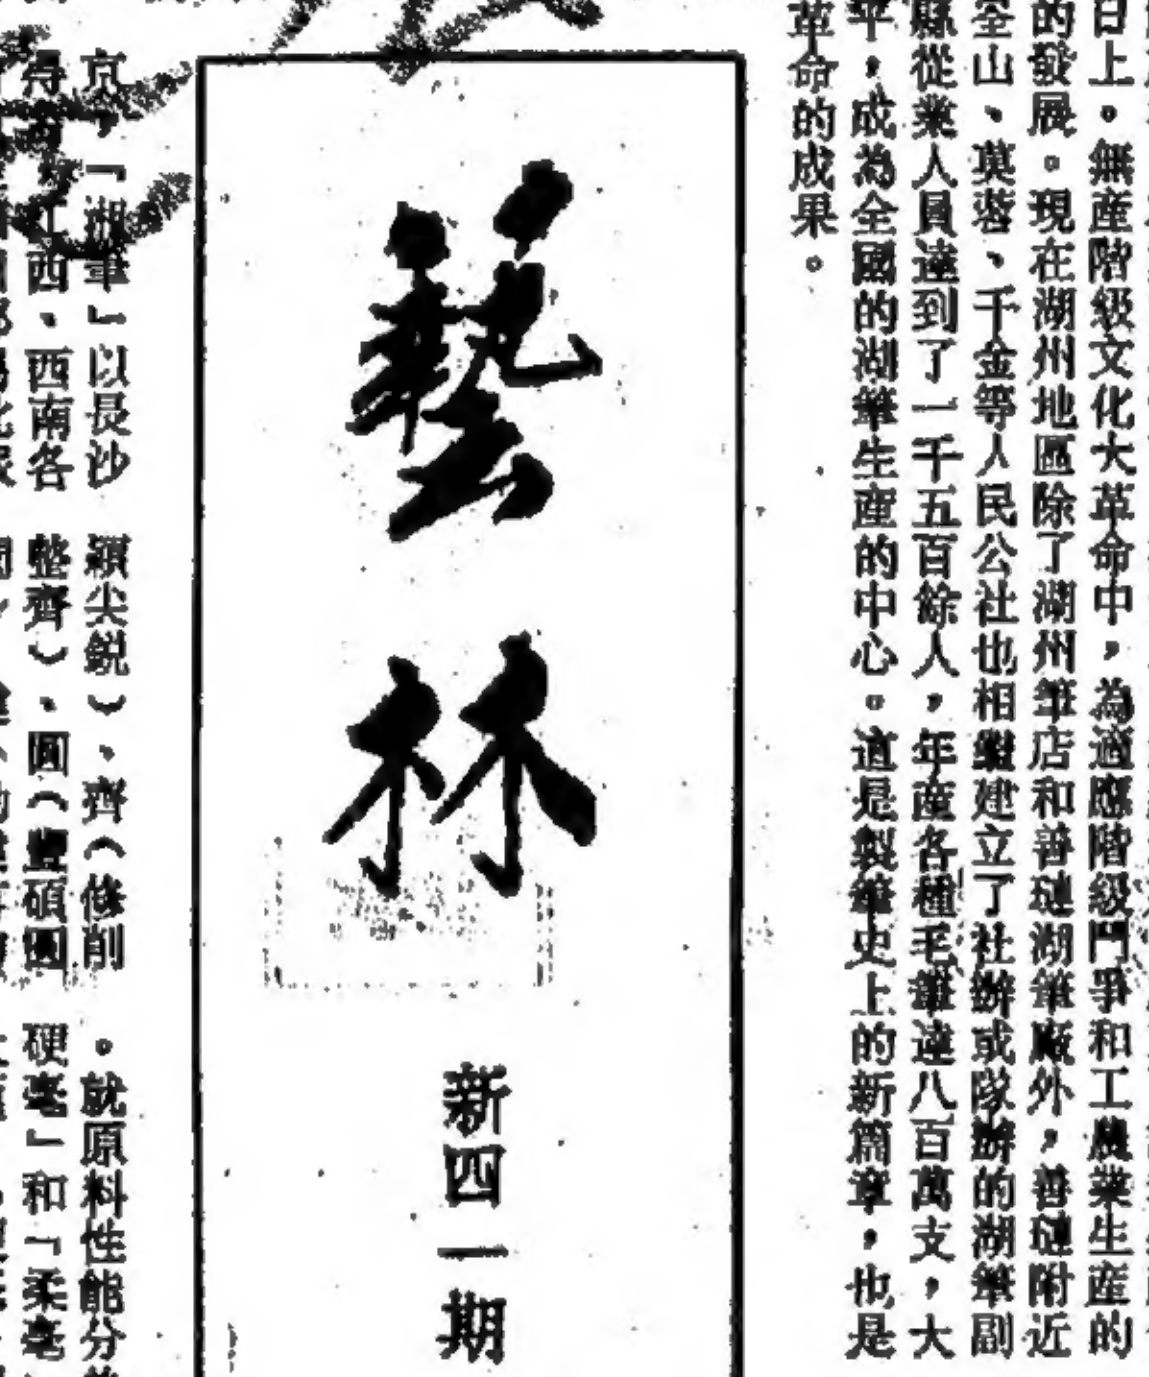 日上。無産階級文化大革命中，為適應階級鬥爭和工農業生産的
的發展。現在湖州地區除了湖州筆店和善璉湖筆廠外，善璉附近
山、莫蓉、千金等人民公社也相繼建立了社辦或隊辦的湖筆
縣從業人員達到了一千五百餘人，年産各種毛筆達八百萬支，大
平，成為全國的湖筆生産的中心。這是製筆史上的新篇章，也是
革命的成果。
藝林
新四一期
京，「湖筆」以長沙
西、西南各
穎尖鋭）、齊（修削
整齊）、圓（豐碩圓
。就原料性能分
硬毫」和「柔毫